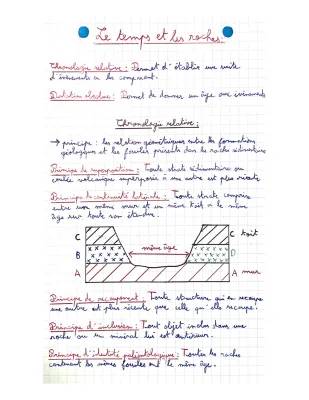 Le temps et les roches.
Chronologie relative : Permet d'établir une suite
d'évènements en les comparant.
Datation absolue : Permet de donner un âge aux évènements
Chronologie relative :
→ principe : les relation géométriques entre les formations
géologiques et les fossiles présents dans les roches sédimentaires
Principe de superposition : Toute strate sédimentaire ou
coulée volcanique superposée à une autre est plus récente
Principe de continuité latérale : Toute strate comprise
entre un même mur et un même toit a le même
âge sur toute son étendue.
C C toit
B même âge D
A A mur
Principe de recoupement : Toute structure qui en recoupe
une autre est plus récente que celle qu'elle recoupe.
Principe d'inclusion : Tout objet inclus dans une
roche ou un minéral lui est antérieur.
Principe d'identité paléontologique : Toutes les roches
contenant les mêmes fossiles ont le même âge.